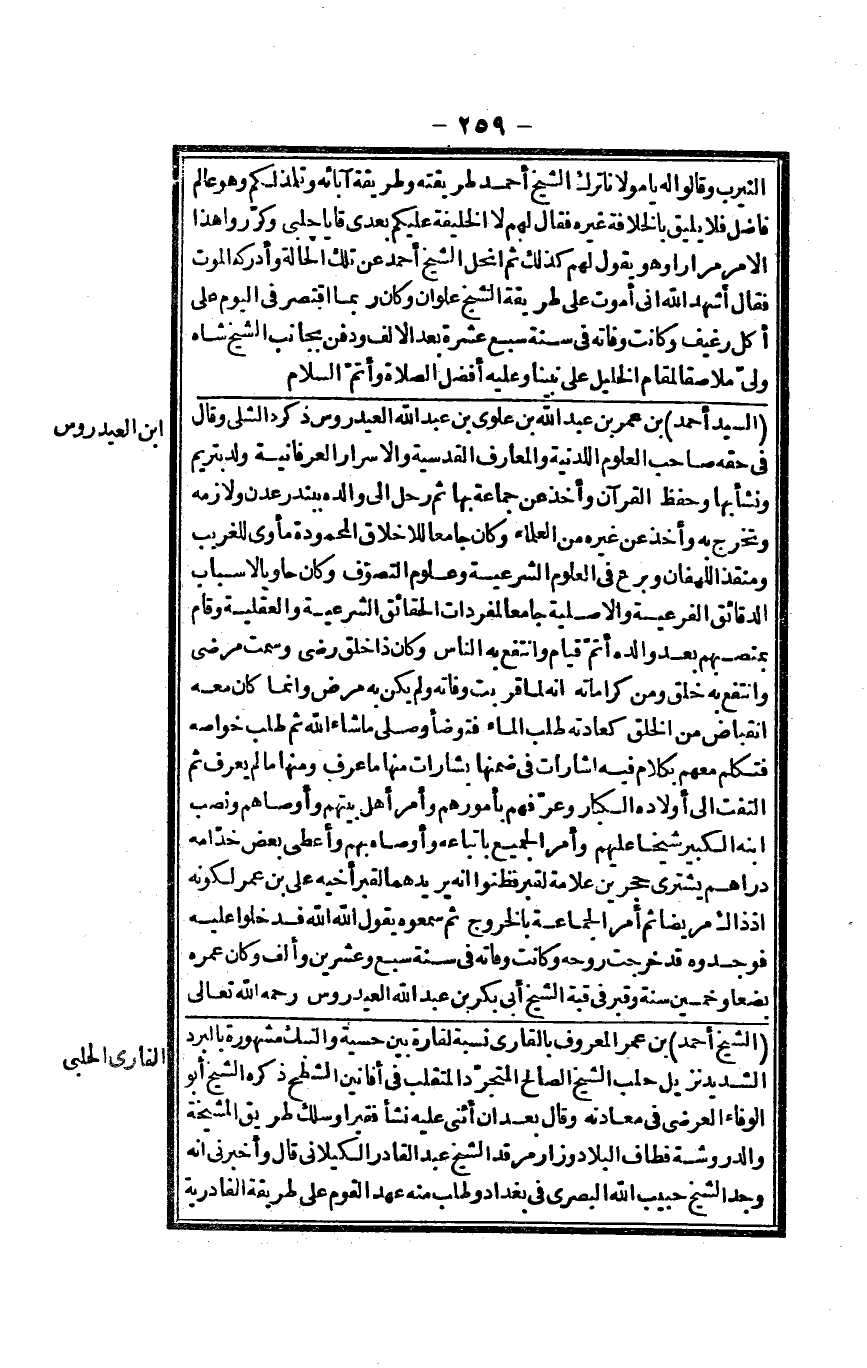 - ٢٥٩ -
النيرب وقالوا له يا مولانا ترك الشيخ أحمد طريقته وطريقة آبائه وتلمذ لكم وهو عالم
فاضل فلا يليق بالخلافة غيره فقال لهم لا الخليفة عليكم بعدى قايا چلبى وكرّروا هذا
الامر مرارا وهو يقول لهم كذلك ثم انحل الشيخ أحمد عن تلك الحالة وأدركه الموت
فقال أشهد الله انى أموت على طريقة الشيخ علوان وكان ربما اقتصر فى اليوم على
أكل رغيف وكانت وفاته فى سنة سبع عشرة بعد الالف ودفن بجانب الشيخ شاه
ولىّ ملاصقا لمقام الخليل على نبينا وعليه أفضل الصلاة وأتمّ السلام
(السيد أحمد) بن عمر بن عبد الله بن علوى بن عبد الله العيدروس ذكره الشلى وقال
ابن العيدروس
فى حقه صاحب العلوم اللدنية والمعارف القدسية والاسرار العرفانية ولد بتريم
ونشأ بها وحفظ القرآن وأخذ عن جماعة بها ثم رحل الى والده ببندر عدن ولازمه
وتخرج به وأخذ عن غيره من العلماء وكان جامعا للاخلاق المحمودة مأوى للغريب
ومنقذ اللهفان وبرع فى العلوم الشرعية وعلوم التصوّف وكان حاويا لاسباب
الدقائق الفرعية والاصلية جامعا لمفردات الحقائق الشرعية والعقلية وقام
بمنصبهم بعد والده أتمّ قيام وانتفع به الناس وكان ذا خلق رضى وسمت مرضى
وانتفع به خلق ومن كراماته انه لما قربت وفاته ولم يكن به مرض وانما كان معه
انقباض من الخلق كعادته طلب الماء فتوضأ وصلى ما شاء الله ثم طلب خواصه
فتكلم معهم بكلام فيه اشارات فى ضمنها بشارات منها ما عرف ومنها ما لم يعرف ثم
التفت الى أولاده الكبار وعرّفهم بأمورهم وأمر أهل بيتهم وأوصاهم ونصب
ابنه الكبير شيخا عليهم وأمر الجميع باتباعه وأوصاه بهم وأعطى بعض خدّامه
دراهم يشترى حجرين علامة لقبر فظنوا انه يريدهما لقبر أخيه على بن عمر لكونه
اذ ذاك مريضا ثم أمر الجماعة بالخروج ثم سمعوه يقول الله الله فدخلوا عليه
فوجدوه قد خرجت روحه وكانت وفاته فى سنة سبع وعشرين وألف وكان عمره
بضعا وخمسين سنة وقبر فى قبة الشيخ أبى بكر بن عبد الله العيدروس رحمه الله تعالى
(الشيخ أحمد) بن عمر المعروف بالقارى نسبة لقارة بين حسية والنبك مشهورة بالبرد
القارى الحلبى
الشديد نزيل حلب الشيخ الصالح المتجرّد المتقلب فى أفانين الشطح ذكره الشيخ أبو
الوفاء العرضى فى معادنه وقال بعد ان أثنى عليه نشأ فقيرا وسلك طريق المشيخة
والدروشة فطاف البلاد وزار مرقد الشيخ عبد القادر الكيلانى قال وأخبرنى انه
وجد الشيخ حبيب الله البصرى فى بغداد وطلب منه عهد القوم على طريقة القادرية